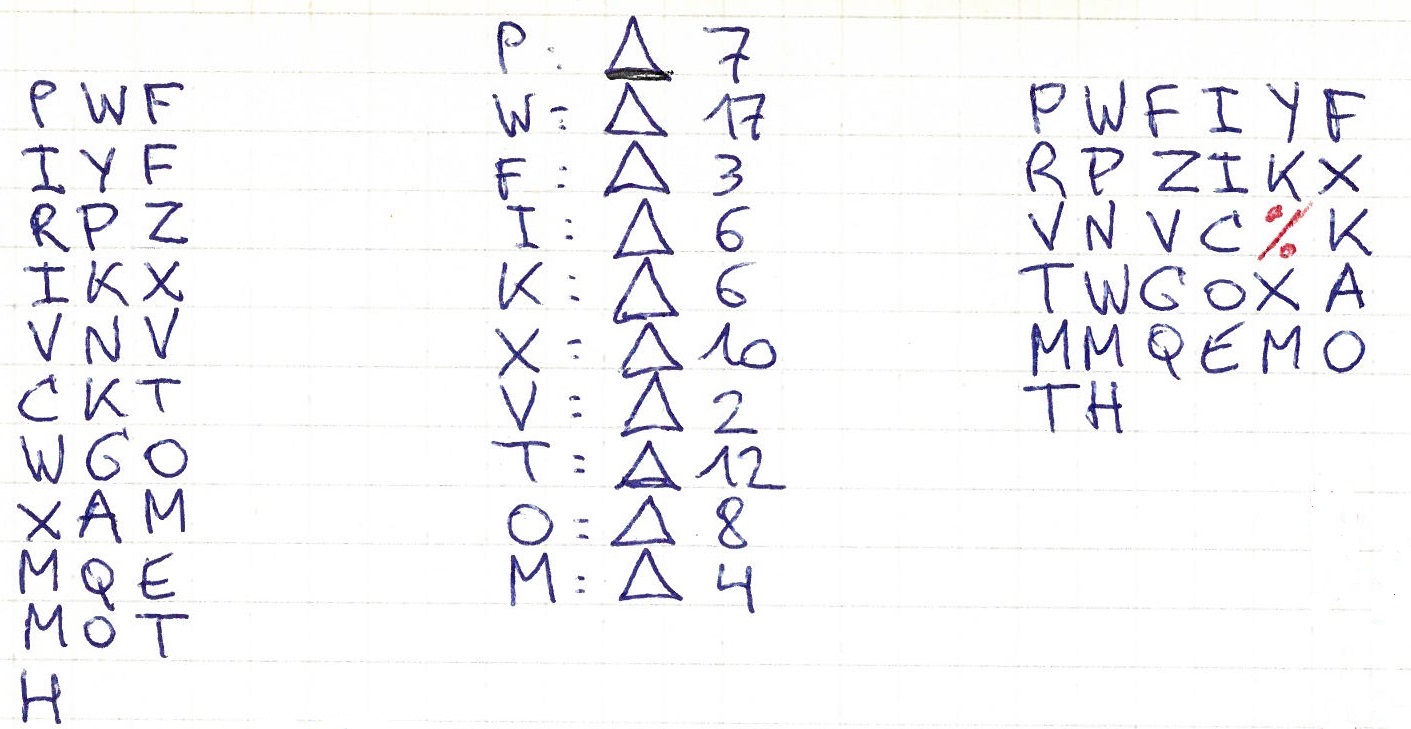 P W F
I Y F
R P Z
I K X
V N V
C K T
W G O
X A M
M Q E
M O T
H
P: △ 7
W: △ 17
F: △ 3
I: △ 6
K: △ 6
X: △ 10
V: △ 2
T: △ 12
O: △ 8
M: △ 4
P W F I Y F
R P Z I K X
V N V C % K
T W G O X A
M M Q E M O
T H